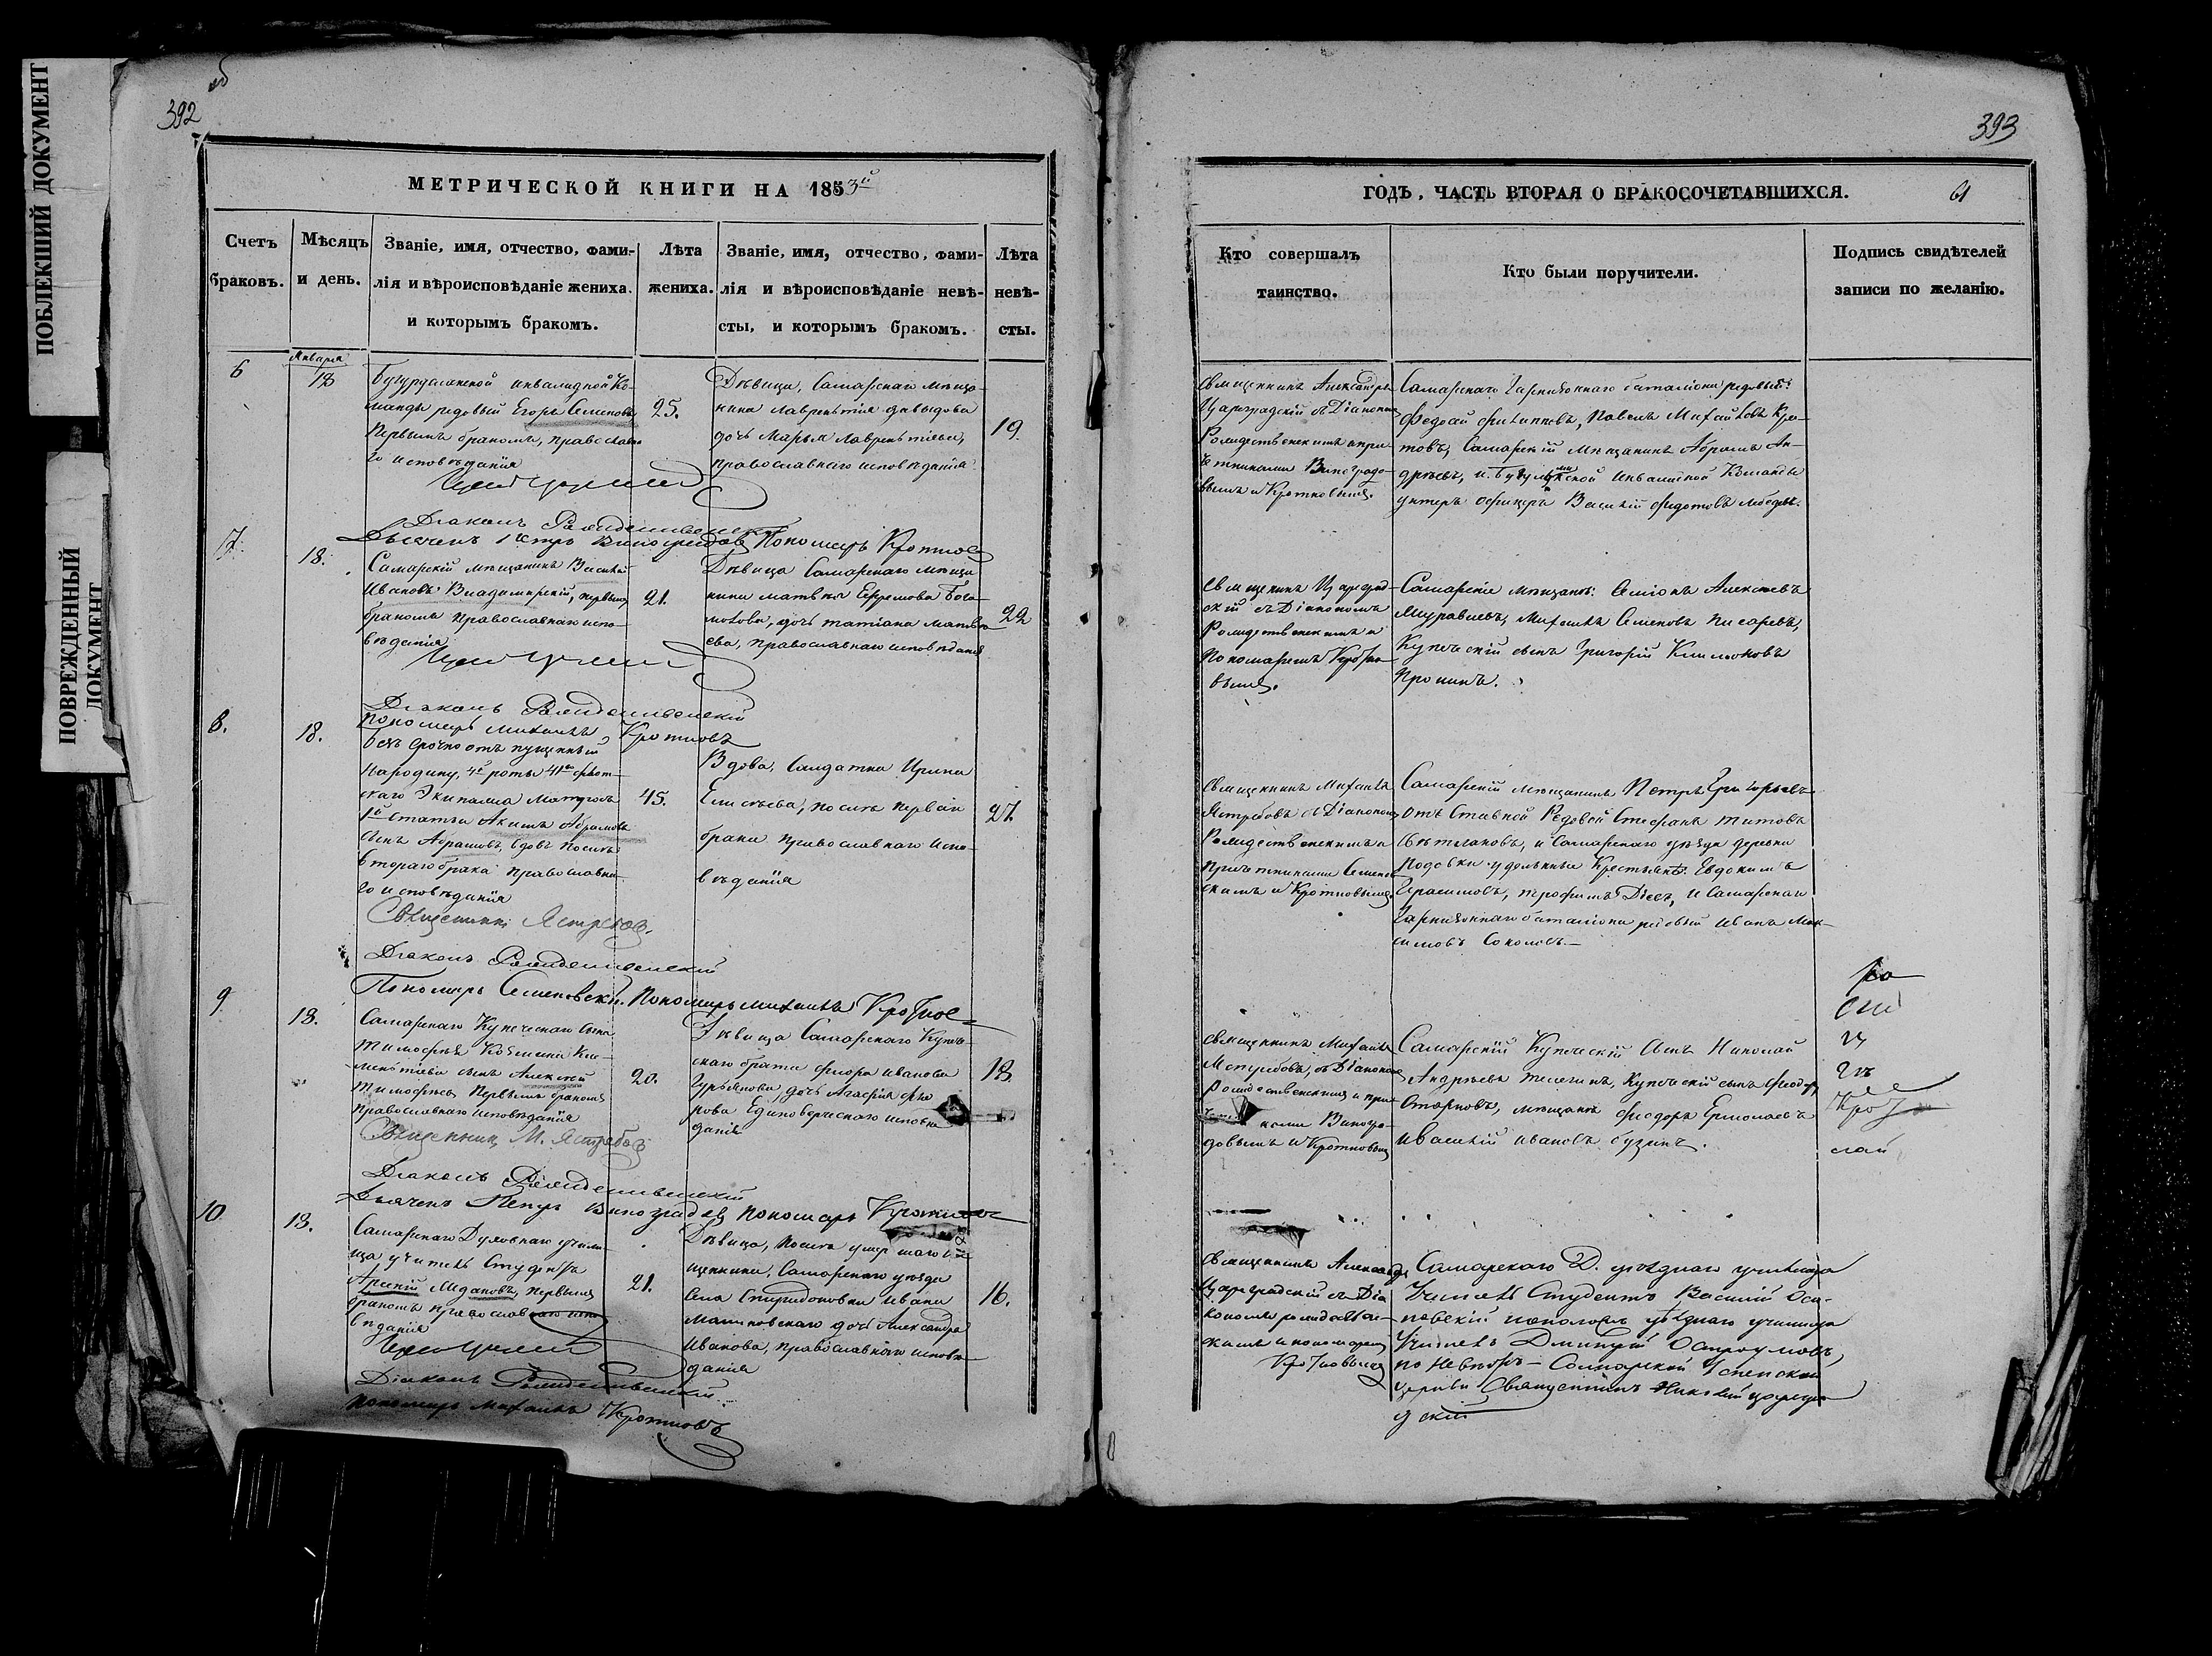 ПОБЛЕКШИЙ ДОКУМЕНТ
ПОВРЕЖДЕННЫЙ
ДОКУМЕНТ
392
МЕТРИЧЕСКОЙ КНИГИ НА 1853й
Счетъ
браковъ.
Мѣсяцъ
и день.
Званіе, имя, отчество, фами-
лія и вѣроисповѣданіе жениха.
и которымъ бракомъ.
Лѣта
жениха.
Званіе, имя, отчество, фами-
лія и вѣроисповѣданіе невѣ-
сты, и которымъ бракомъ.
Лѣта
невѣ-
сты.
6
Января
18
Бугурусланской инвалидной Ко-
манды рядовый Егоръ Семеновъ
Первымъ бракомъ, православна-
го исповѣданія
25.
Дѣвица, Самарскаго мѣща-
нина Лаврентія Давыдова
дочь Марья Лаврентіева,
православнаго исповѣданія
19.
Діаконъ Рождественскій
Дьячекъ Петръ Виноградовъ Пономарь Кротковъ
7.
18.
Самарскій мѣщанинъ Василій
Ивановъ Владимирскій, первымъ
бракомъ православнаго испо-
вѣданія
21.
Дѣвица Самарскаго мѣща
нина Матвѣя Ефремова Бога-
молова, дочь Татіана Матвѣ-
ева, православнаго исповѣданія
22
Діаконъ Рождественскій
Пономарь Михаилъ Кротковъ
8.
18.
Безсрочно отпущенный
на родину, 4й роты 41го флот-
скаго Экипажа Матрозъ
1й статьи Акимъ Абрамовъ
сынъ Абрамовъ, вдовъ послѣ
втораго брака православна-
го исповѣданія
45.
Вдова, Солдатка Ирина
Елисѣева, послѣ перваго
брака православнаго испо-
вѣданія
27.
Священникъ Ястребовъ.
Діаконъ Рождественскій
Пономарь Семеновскій. Пономарь Михаилъ Кротковъ
9.
18.
Самарскаго Купеческаго сына
Тимофея Козьмина Кли-
ментіева сынъ Алексѣй
Тимофѣевъ Первымъ бракомъ
православнаго исповѣданія
20.
Дѣвица Самарскаго Купече-
скаго брата Флора Иванова
дочь Агафія Фло
рова Единоверческаго исповѣ
данія
18.
Священникъ М. Ястребовъ
Діаконъ Рождественскій
Дьячекъ Петръ Виноградовъ Пономарь Кротковъ
10.
18.
Самарскаго Духовнаго учили-
ща учитель Студентъ
Арсеній Медановъ, первымъ
бракомъ православнаго испо
вѣданія
21.
Дѣвица, послѣ умершаго свя
щенника, Самарскаго уѣзда
села Спиридоновки Ивана
Малиновскаго дочь Александра
Иванова, православнаго исповѣ-
данія
16.
Діаконъ Рождественскій
Пономарь Михаилъ Кротковъ
393
ГОДЪ, ЧАСТЬ ВТОРАЯ О БРАКОСОЧЕТАВШИХСЯ.
61
Кто совершалъ
таинство.
Кто были поручители.
Подпись свидѣтелей
записи по желанію.
Священникъ Александръ
Цареградскій съ Діакономъ
Рождественскимъ и при-
четниками Виноградо-
вымъ и Кротковымъ.
Самарскаго Гарнизоннаго баталіона рядовые:
Федосѣй Филиповъ, Павелъ Михайловъ Кро-
товъ, Самарскій мѣщанинъ Абрамъ Ан-
дрѣевъ, и Бугульминской Инвалидной Команды
унтеръ офицеръ Василій Федотовъ Лебедевъ.
Священникъ Цареград-
скій съ Діакономъ
Рождественскимъ и
Пономаремъ Кротко-
вымъ.
Самарскіе мѣщане: Семіонъ Алексѣевъ
Муравьевъ, Михаилъ Семеновъ Писаревъ,
Купеческій сынъ Григорій Климоновъ
Пронинъ.
Священникъ Михаилъ
Ястребовъ съ Діакономъ
Рождественскимъ и
Причетниками Семенов-
скимъ и Кротковымъ.
Самарскій мѣщанинъ Петръ Григорьевъ
Отставной Рядовой Стефанъ Титовъ
и Самарскаго уѣзда деревни
удѣльные Крестьяне: Евдокимъ
Герасимовъ, Трофимъ и Самарскаго
Гарнизоннаго баталіона рядовый Иванъ Мак-
симовъ Соколовъ.
Священникъ Михаилъ
Ястребовъ, съ Діакономъ
Рождественскимъ и при-
никами Виногра-
довымъ и Кротковымъ
Самарскій Купеческій сынъ Николай
Андрѣевъ Телегинъ, Купеческій сынъ Феодоръ
мѣщане Феодоръ Ермолаевъ
и Василій Ивановъ Бузинъ.
Священникъ Александръ
Цареградскій съ Діа
кономъ Рождествен-
скимъ и пономаремъ
Кротковымъ
Самарскаго Д. уѣзднаго училища
Учитель Студентъ Василій Оси-
повскій уѣзднаго училища
Учитель Дмитрій Остроумовъ,
по невѣстѣ - Самарской Успенской
церкви Священникъ Николай Цареград
дскій